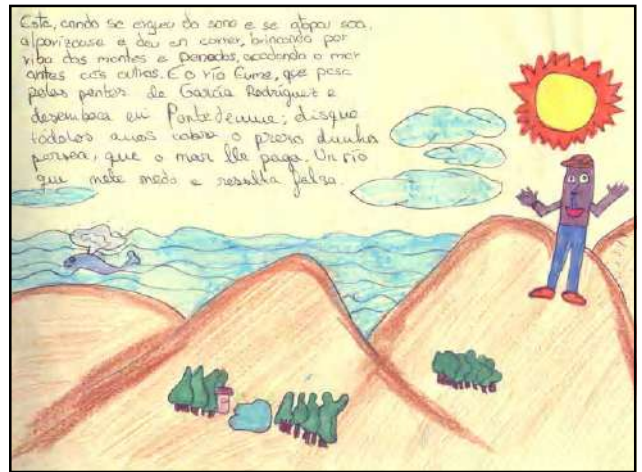 Esta, cando se ergueu do sono e se atopou soa,
alporizouse e deu en correr, brincando por
riba dos montes e penedos, acadando o mar
antes cás outras. É o río Eume, que pasa
polas pontes de García Rodríguez e
desemboca en Pontedeume; disque
tódolos anos cobra o prezo dunha
persoa, que o mar lle paga. Un río
que mete medo e resulta falso.